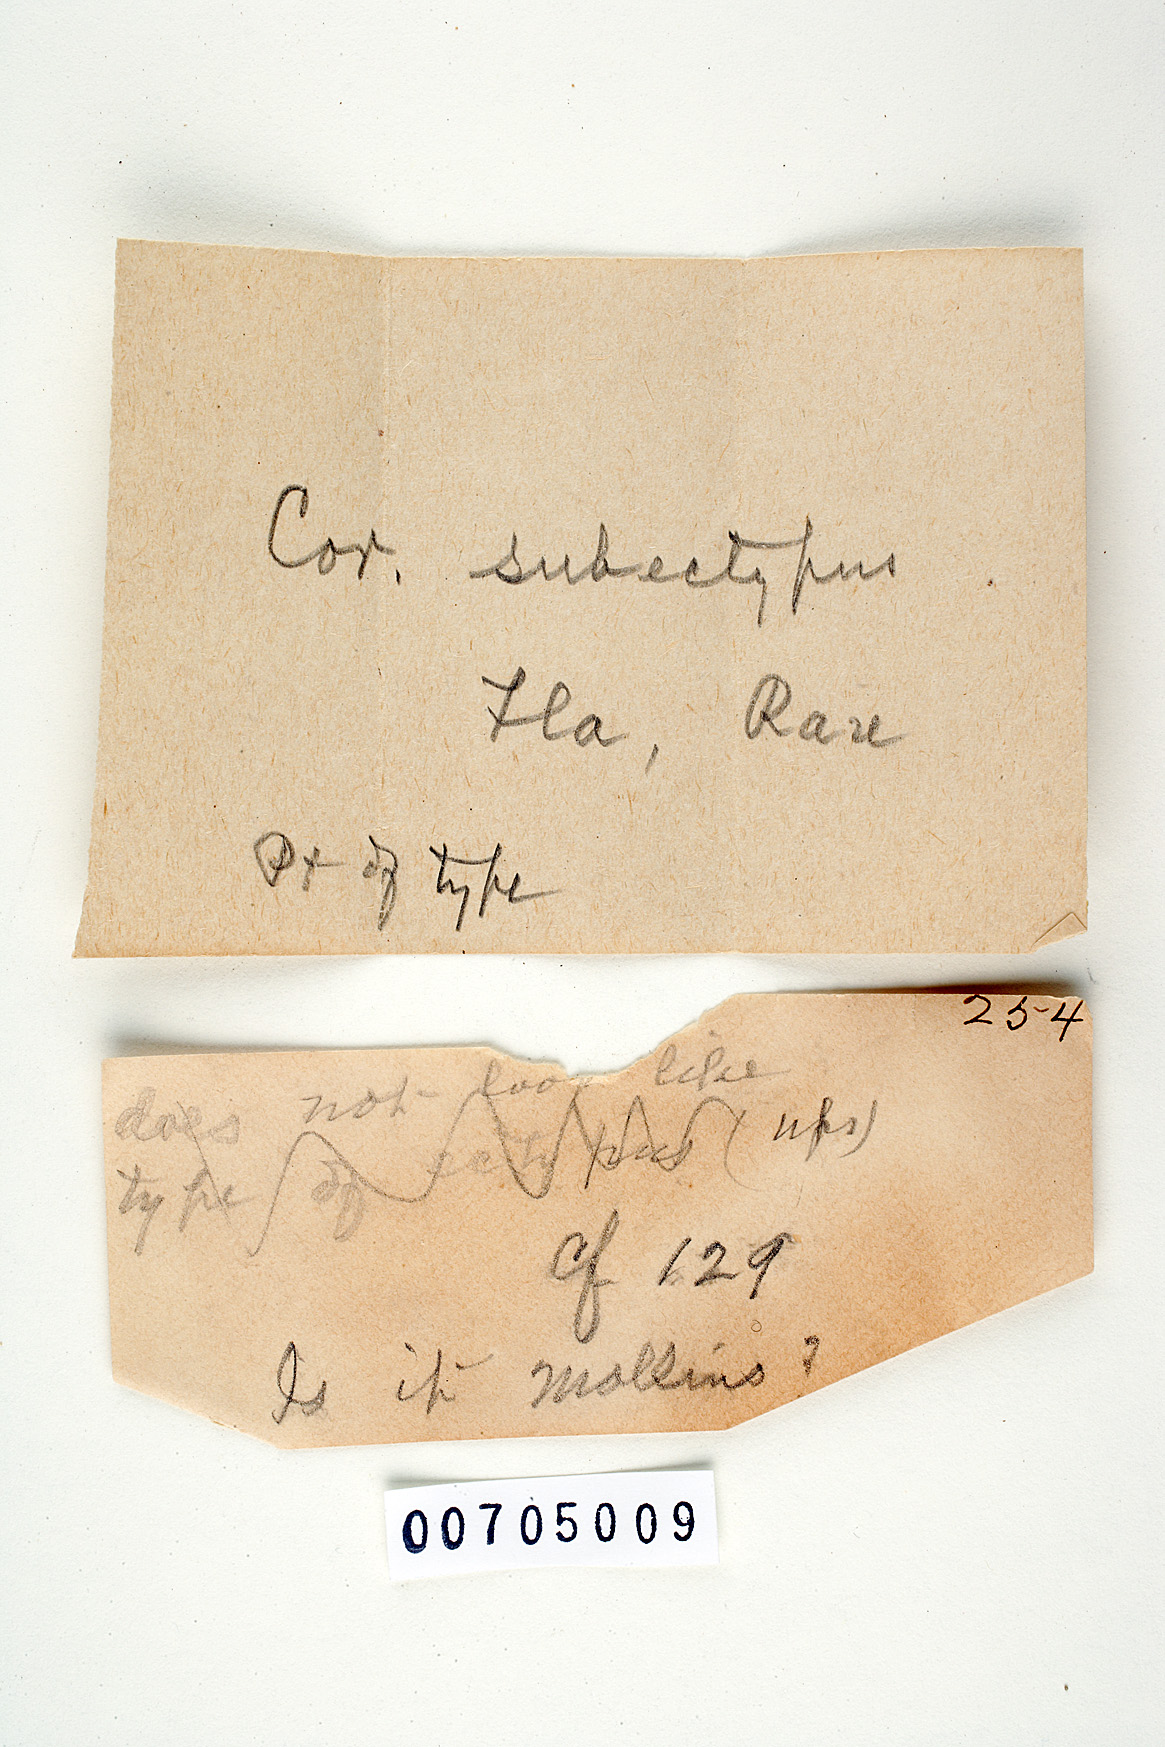 Cor. subectypus
Fla, Rare
Pt of type
254
does not look like
type of ectypus (nps)
Cf 129
Is it mollsins?
00705009